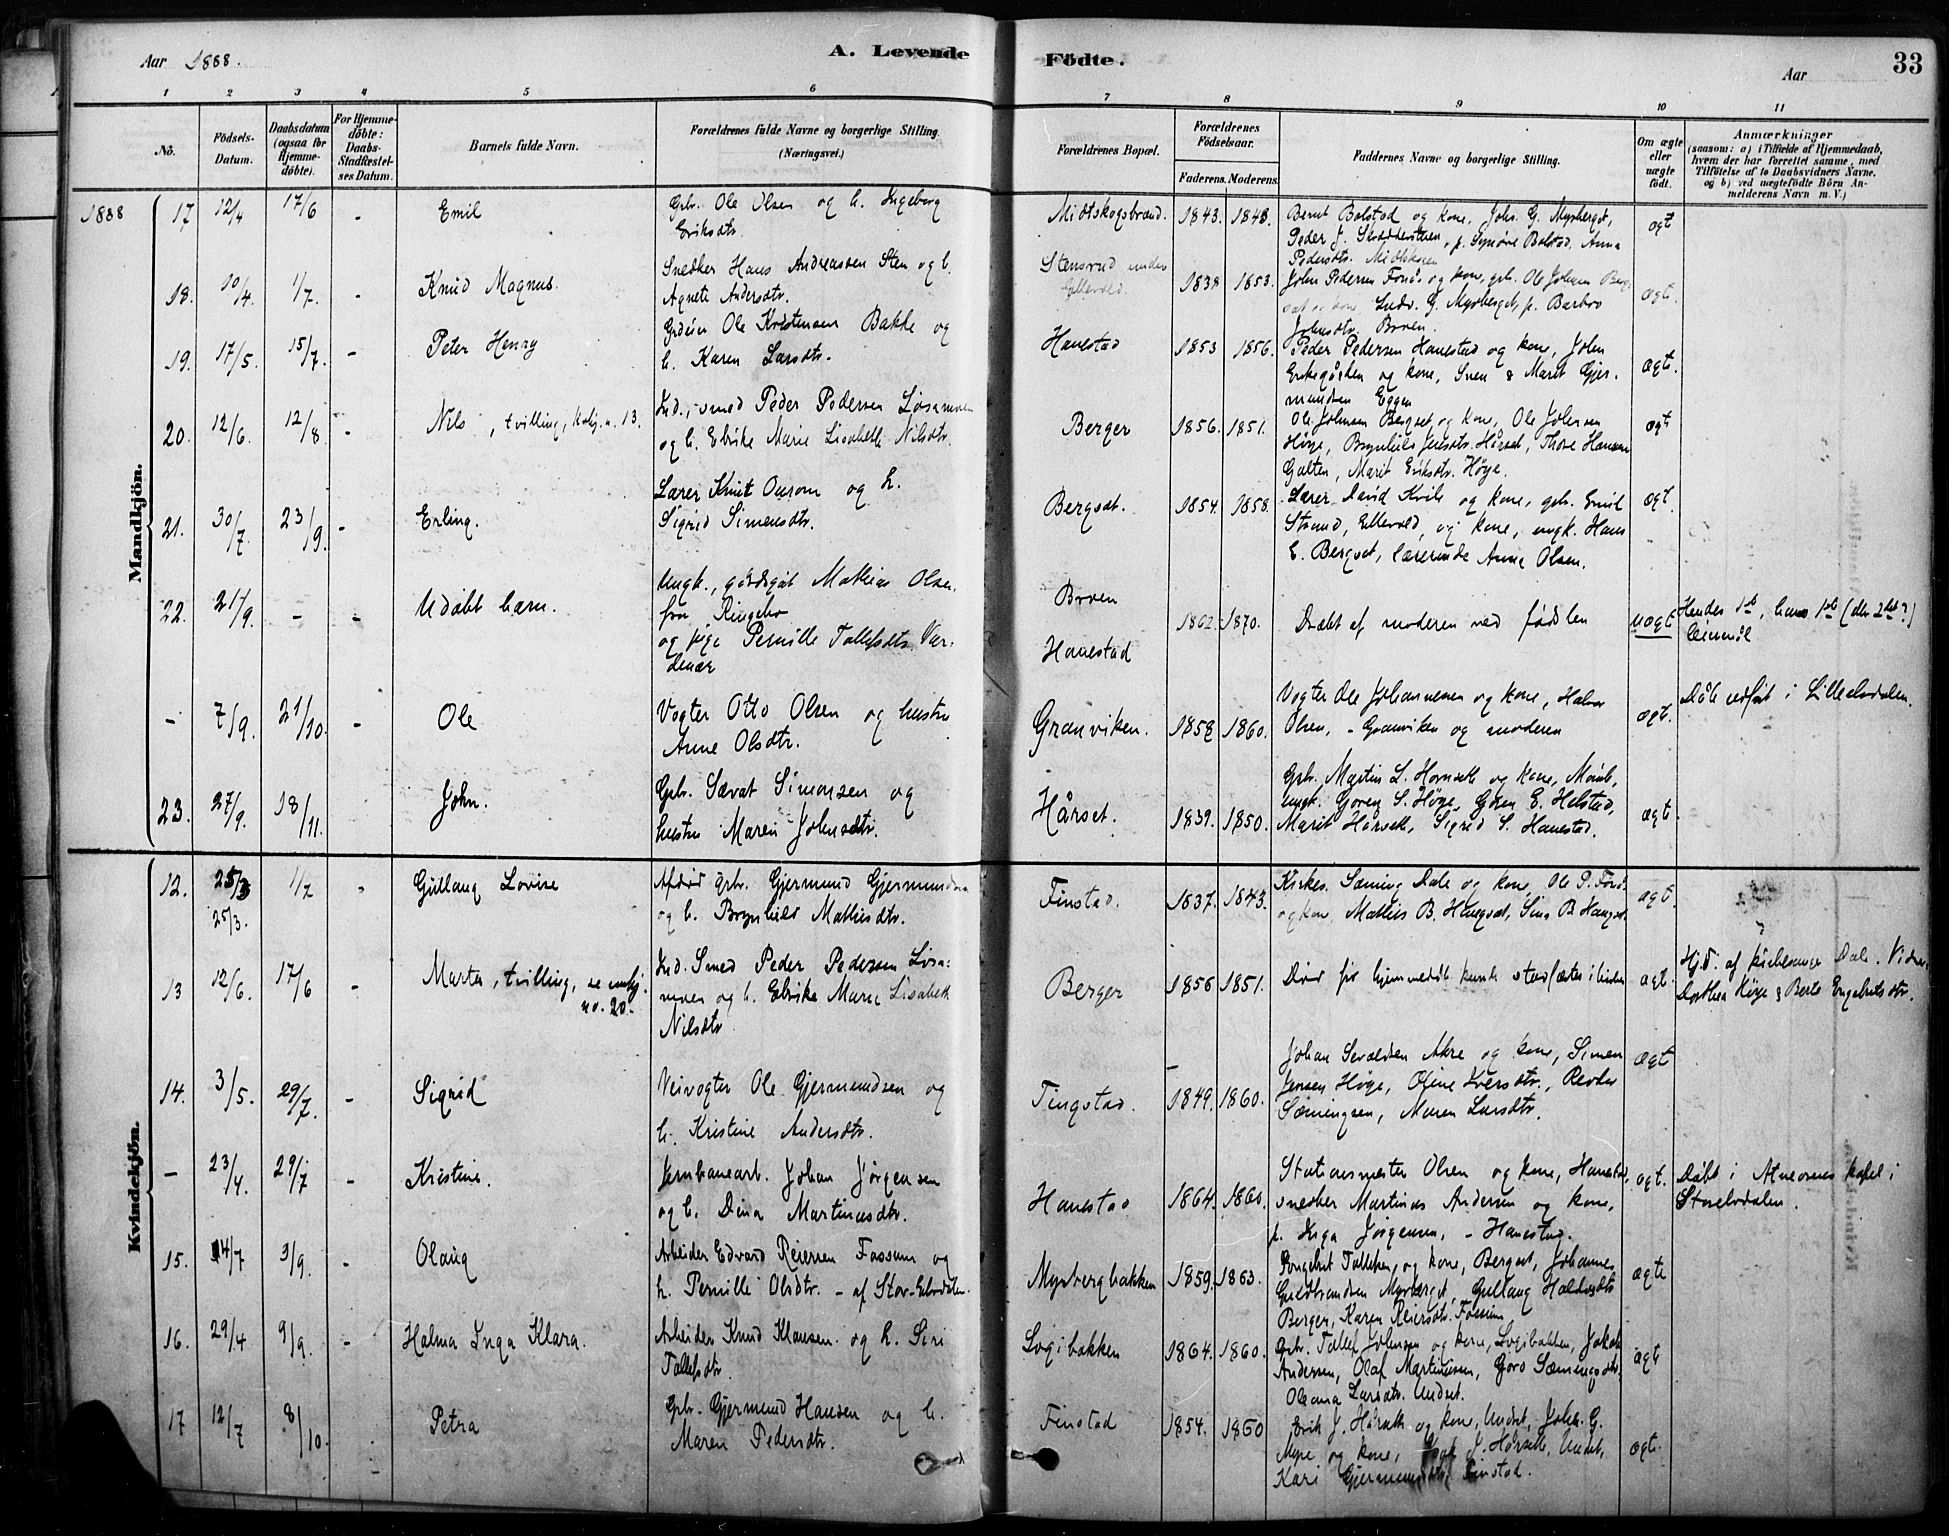 Aar 1888. A. Levende Födte. Aar 33
1 2 3 4 5 6 7 8 9 10 11
No. Födsels-Datum. Daabsdatum (ogsaa for Hjemmedöbte). For Hjemmedöbte: Daabs-Stadfæstelses Datum. Barnets fulde Navn. Forældrenes fulde Navne og borgerlige Stilling. (Næringsvei.) Forældrenes Bopæl. Forældrenes Födselsaar. Faderens. Moderens. Faddernes Navne og borgerlige Stilling. Om ægte eller uægte födt. Anmærkninger (saasom: a) i Tilfælde af Hjemmedaab, hvem der har forrettet samme, med Tilföielse af to Daabsvidners Navne, og b) ved uægtefödte Börn Anmelderens Navn m. V.)
Mandkjön.
1888 17 12/4 17/6 - Emil Gbr. Ole Olsen og h. Ingeborg
Eriksdtr. Midtskogsbrænd. 1843. 1848. Bernt Bolstad og kone, Johs. G. Mysberget,
Peder J. p. Synöve Bolstad, Anna
Pedersdtr. Midtskogen ægt
18. 10/4 1/7. - Knud Magnus. Snedker Hans Andreassen Sten og h.
Agnete Andersdtr. Stensrud under
Ellevold. 1838 1853. John Pedersen og kone, gbr. Ole Johnsen
Ludv. G. Mysberget, p. Barbro
Johnsdtr. Broen. ægt.
19. 17/5. 15/7. - Peter Henry Ole Kristensen Bakke og
h. Karen Larsdtr. Hanestad 1853 1856. Peder Pedersen Hanestad og kone, John
og kone, Sven & Marit Gjer-
mundsen Eggen ægt.
20. 12/6. 12/8 - Nils, tvilling, kvkj. n. 13. Ind., smed Peder Pedersen
og h. Elrike Marie Lisabeth Nilsdtr. Berger 1856. 1851. Ole Johnsen Bergset og kone, Ole Johnsen
Höye, Brynhild Jensdtr. Hårset, Thore Hansen
Galten, Marit Eriksdtr. Höye. ægt
21. 30/7 23/9. - Erling. Lærer Knut Ourom og h.
Sigrid Simensdtr. Bergset. 1854. 1858. Lærer David Kvile og kone, gbr. Emil
Strand, Ellevold, og kone, ungk. Hans
E. Bergset, lærerinde Anna Olsen. ægt.
22. 21/9. - - Udöbt barn. Ungk., gårdsgut Mathias Olsen
fra Ringebo
og pige Pernille Tollefsdtr. Var-
denær Broen
Hanestad 1862. 1870. Dræbt af moderen ved födslen uægt Hendes 1ste, hans 1ste (eller 2det?)
leiermål
- 7/9. 21/10. - Ole Vogter Otto Olsen og hustru
Anne Olsdtr. Granviken. 1858 1860. Vogter Ole Johannesen og kone, Halvor
Olsen, - Granviken og moderen ægt. Dåb udfört i Lilleelvdalen.
23. 27/9. 18/11. John. Gbr. Sævat Simonsen og
hustru Maren Johnsdtr. Hårset. 1839. 1850. Gbr. Martin L. Hornseth og kone,
ungk. Goren S. Höye, Goren E. Helstad,
Marit Hårseth, Sigrid S. Hanestad. ægt
Kvindekjön.
12. 25/3
25/3. 1/7 Gullaug Lovise Afdöd gbr. Gjermund Gjermundsen
og h. Brynhild Mathisdtr. Finstad. 1837. 1843. Kirkes. Sæming Dale og kone, Ole P.
og kone, Mathis B. Haugset, Sina B. Haugset. ægt.
13 12/6. 17/6 - Marta, tvilling, se mkj.
no. 20. Ind. Smed Peder Pedersen
og h. Elrike Marie Lisabeth
Nilsdtr Berger 1856 1851. Död för hjemmedåb kunde stadfæstes i kirken ægt. Hjd. af kirkesanger Dale. Vidner
Dorthea Höye & Berte Engebretsdtr.
14. 3/5. 29/7. - Sigrid Veivogter Ole Gjermundsen og
h. Kristine Andersdtr. Tingstad. 1849. 1860. Johan Sevaldsen Akre og kone, Simen
Jensen Höye, Oline Iversdtr.,
Sæmingsen, Maren Larsdtr. ægt
- 23/4. 29/7 - Kristine. Jernbanearb. Johan Jörgensen
og h. Dina Martinusdtr. Hanestad 1864. 1860. Stationsmester Olsen og kone, Hanestad,
snedker Martinus Andersen og kone,
p. Inga Jörgensen, - Hanestad. ægt. Döbt i Atneosens kapel i
Storelvdalen.
15. 14/7 3/9. - Olaug Arbeider Edvard Reiersen Fossum og
h. Pernille Olsdtr. - af Stor-Elvdalen. Mysbergbakken 1859. 1863. Tollefsen, og kone, Bergset, Johannes
Guldbrandsen Mysberget, Gullaug Haldorsdtr
Berger, Karen Reiersdtr. Fossum ægte
16. 29/4 9/9. - Halma Inga Klara. Arbeider Knud Klausen og h. Siri
Tollefsdtr. Lvgibakken 1864. 1860. Gbr. Tollef Johnsen og kone, Jakob
Andersen, Olaf Martinusen, Goro Sæmingsdtr.
Oleana Larsdtr. Undset. ægte
17 12/7 8/10. - Petra Gbr. Gjermund Hansen og h.
Maren Pedersdtr. Finstad 1854. 1860 Erik J. Hårseth og kone, Undset, Johs. G.
Myre og kone, J. Hårseth, Undset,
Kari Gjermundsdtr. Finstad. ægte.